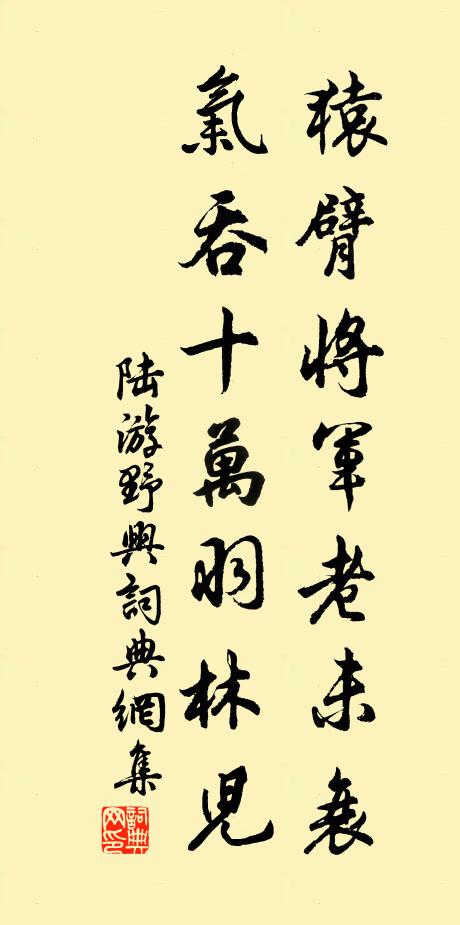 猿臂將軍老未衰
氣吞十萬羽林兒
陆游野興詞典網集
詞典網印